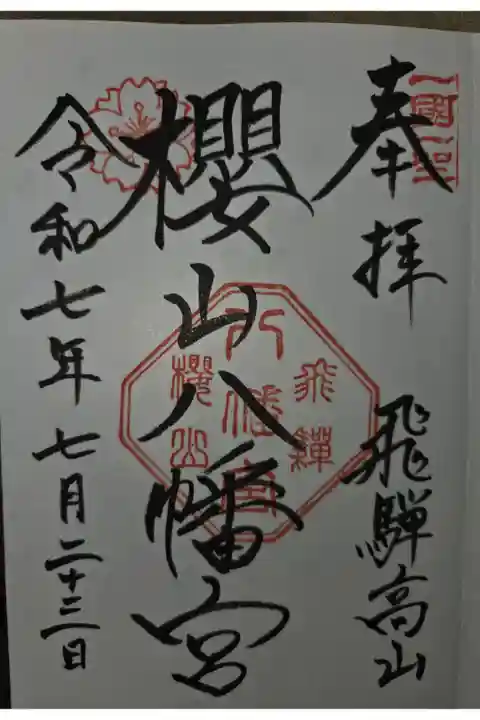 奉拝
飛騨高山
櫻山八幡宮
令和七年七月二十三日
飛騨
八幡宮
櫻山